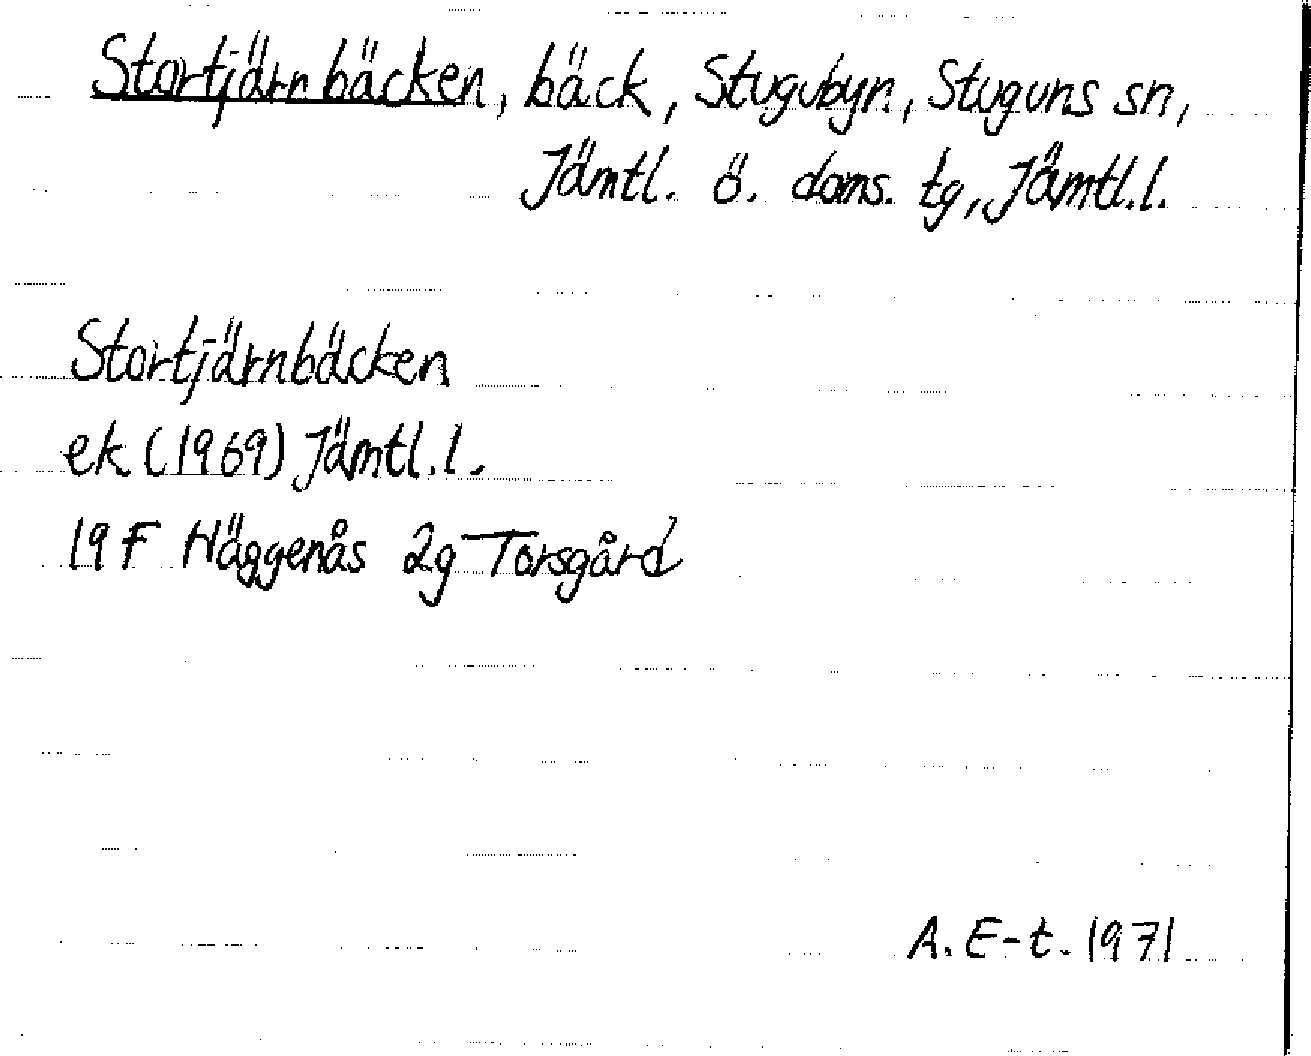 Stortjärnbäcken, bäck, Stugubyn, Stuguns sn,
Jämtl. ö. doms. tg, Jämtl.l.
Stortjärnbäcken
ek (1969) Jämtl.l.
19 F Häggenås 2g Torsgård
A. E-t. 1971